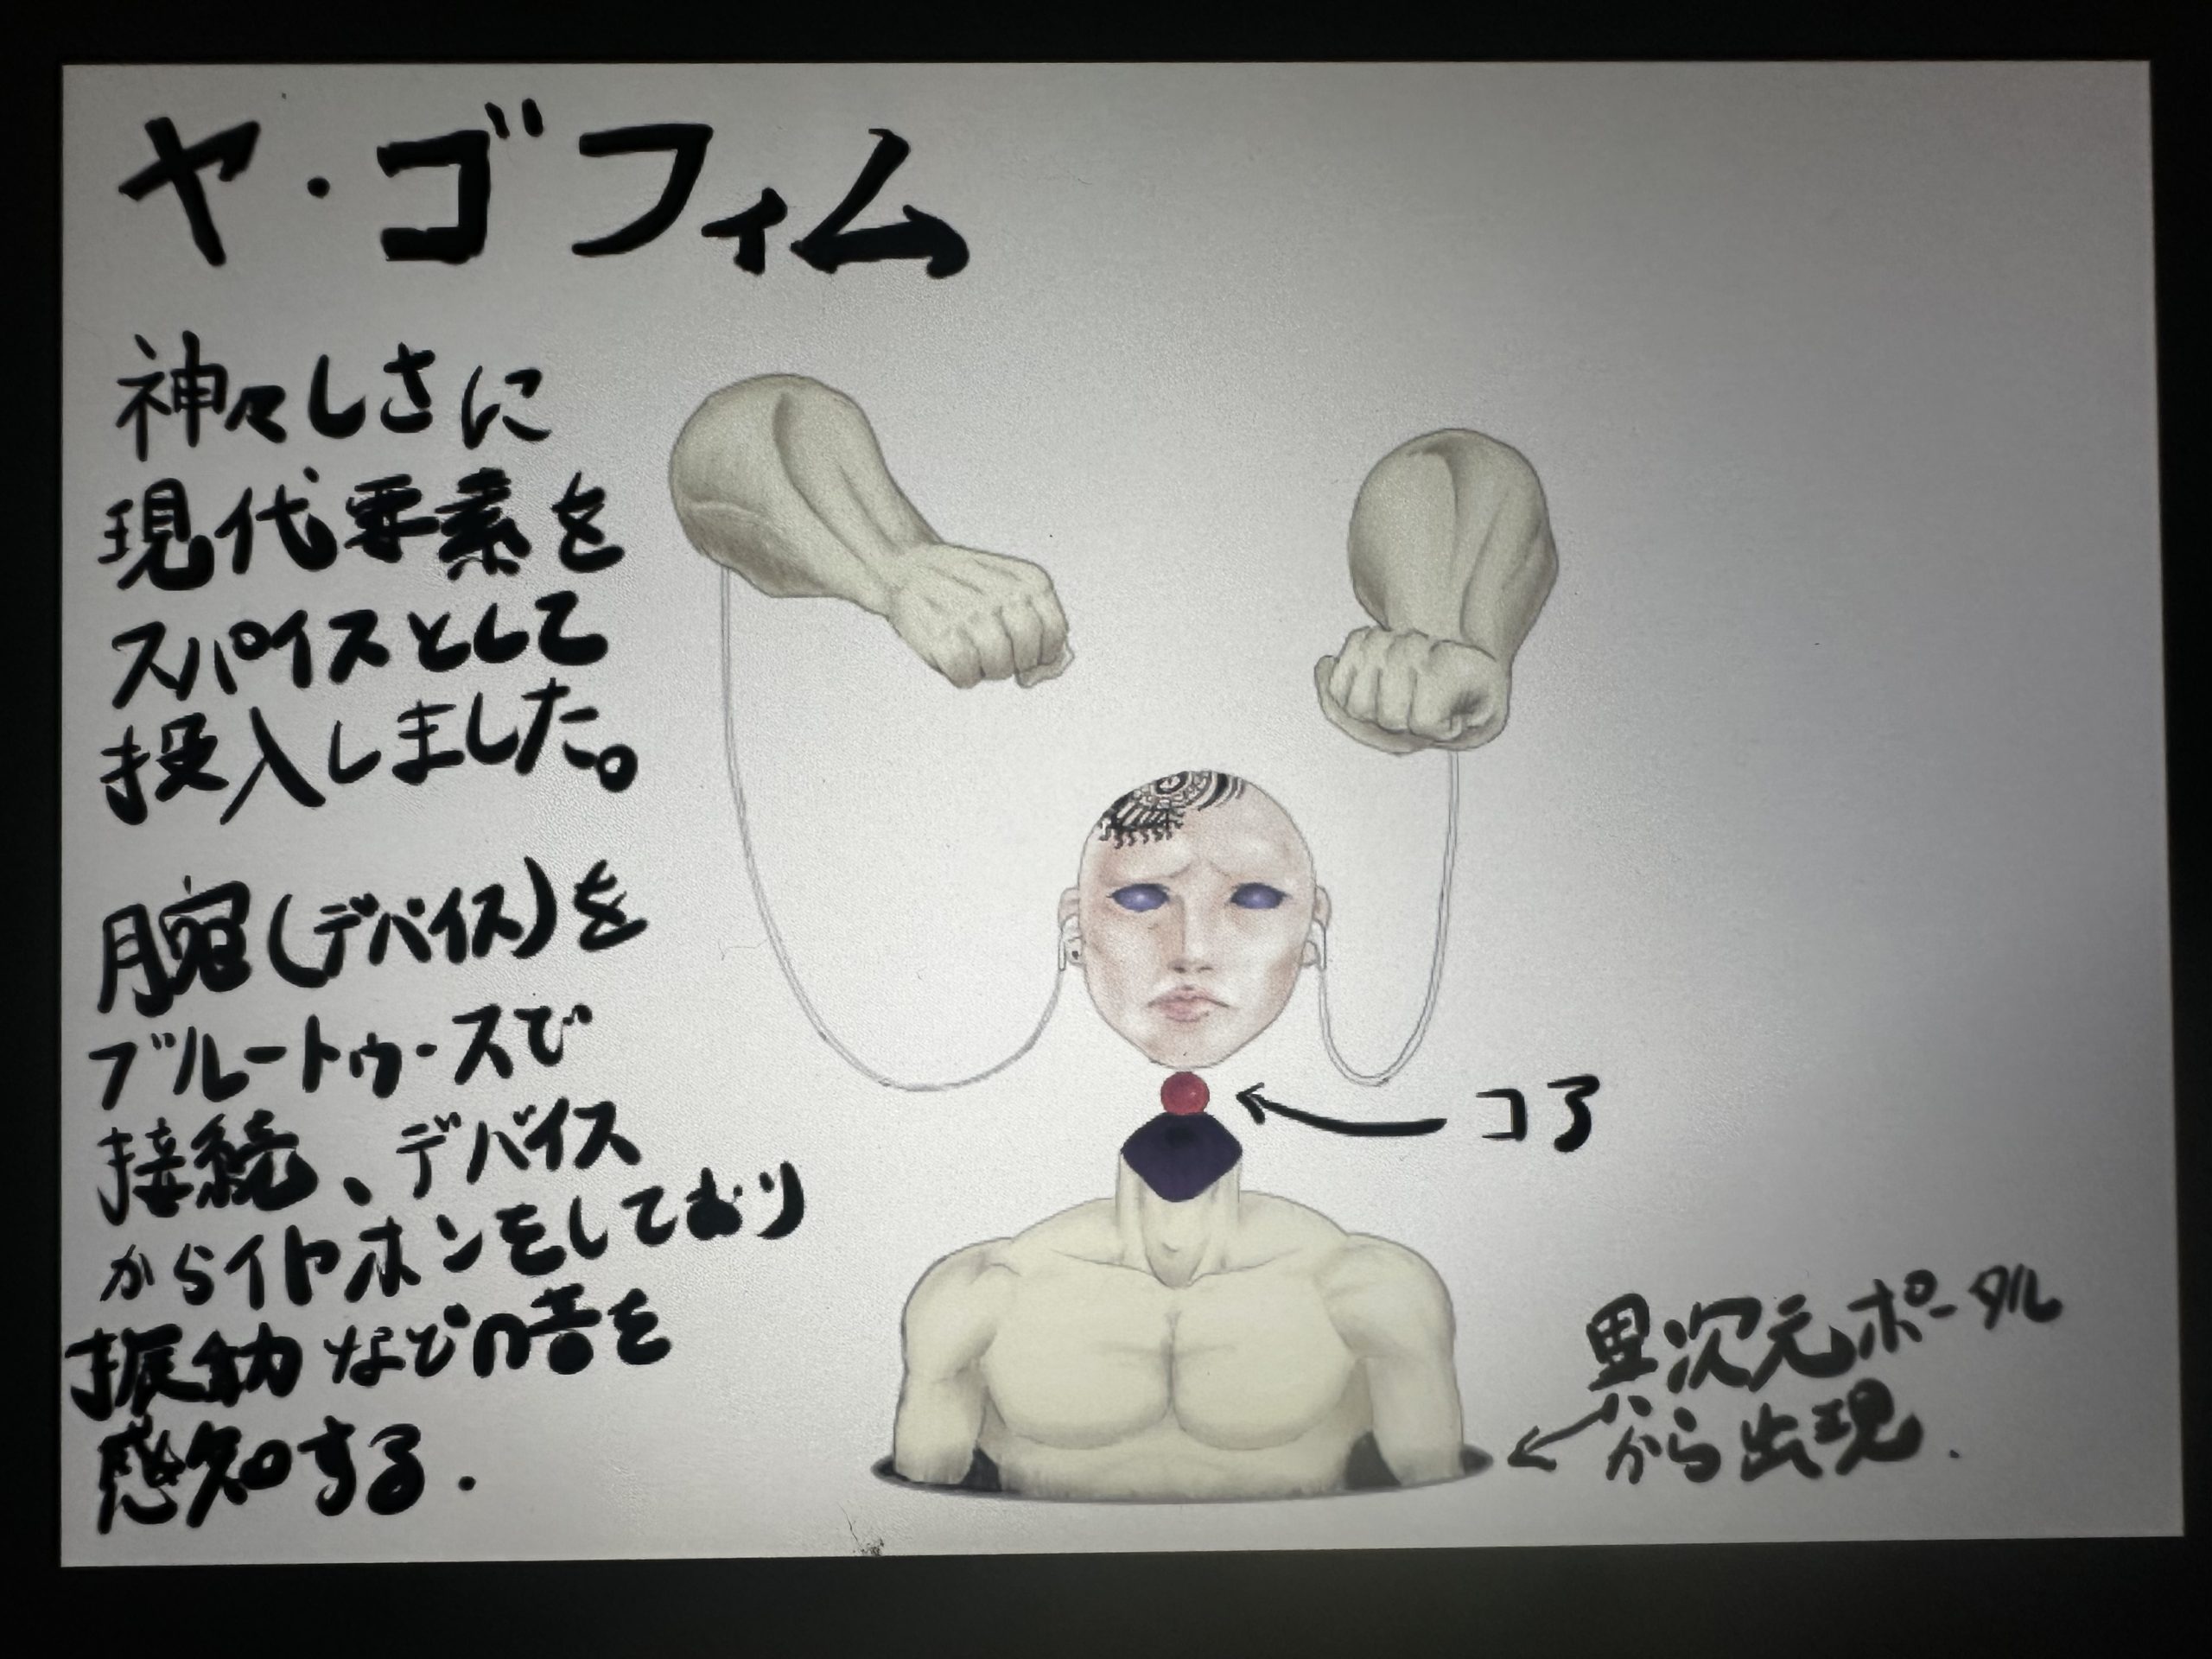 ヤ・ゴフィム
神々しさに
現代要素を
スパイスとして
投入しました。
腕(デバイス)を
ブルートゥースで
接続、デバイス
からイヤホンをしており
振動などの音を
感知する.
コア
異次元ポータル
から出現.